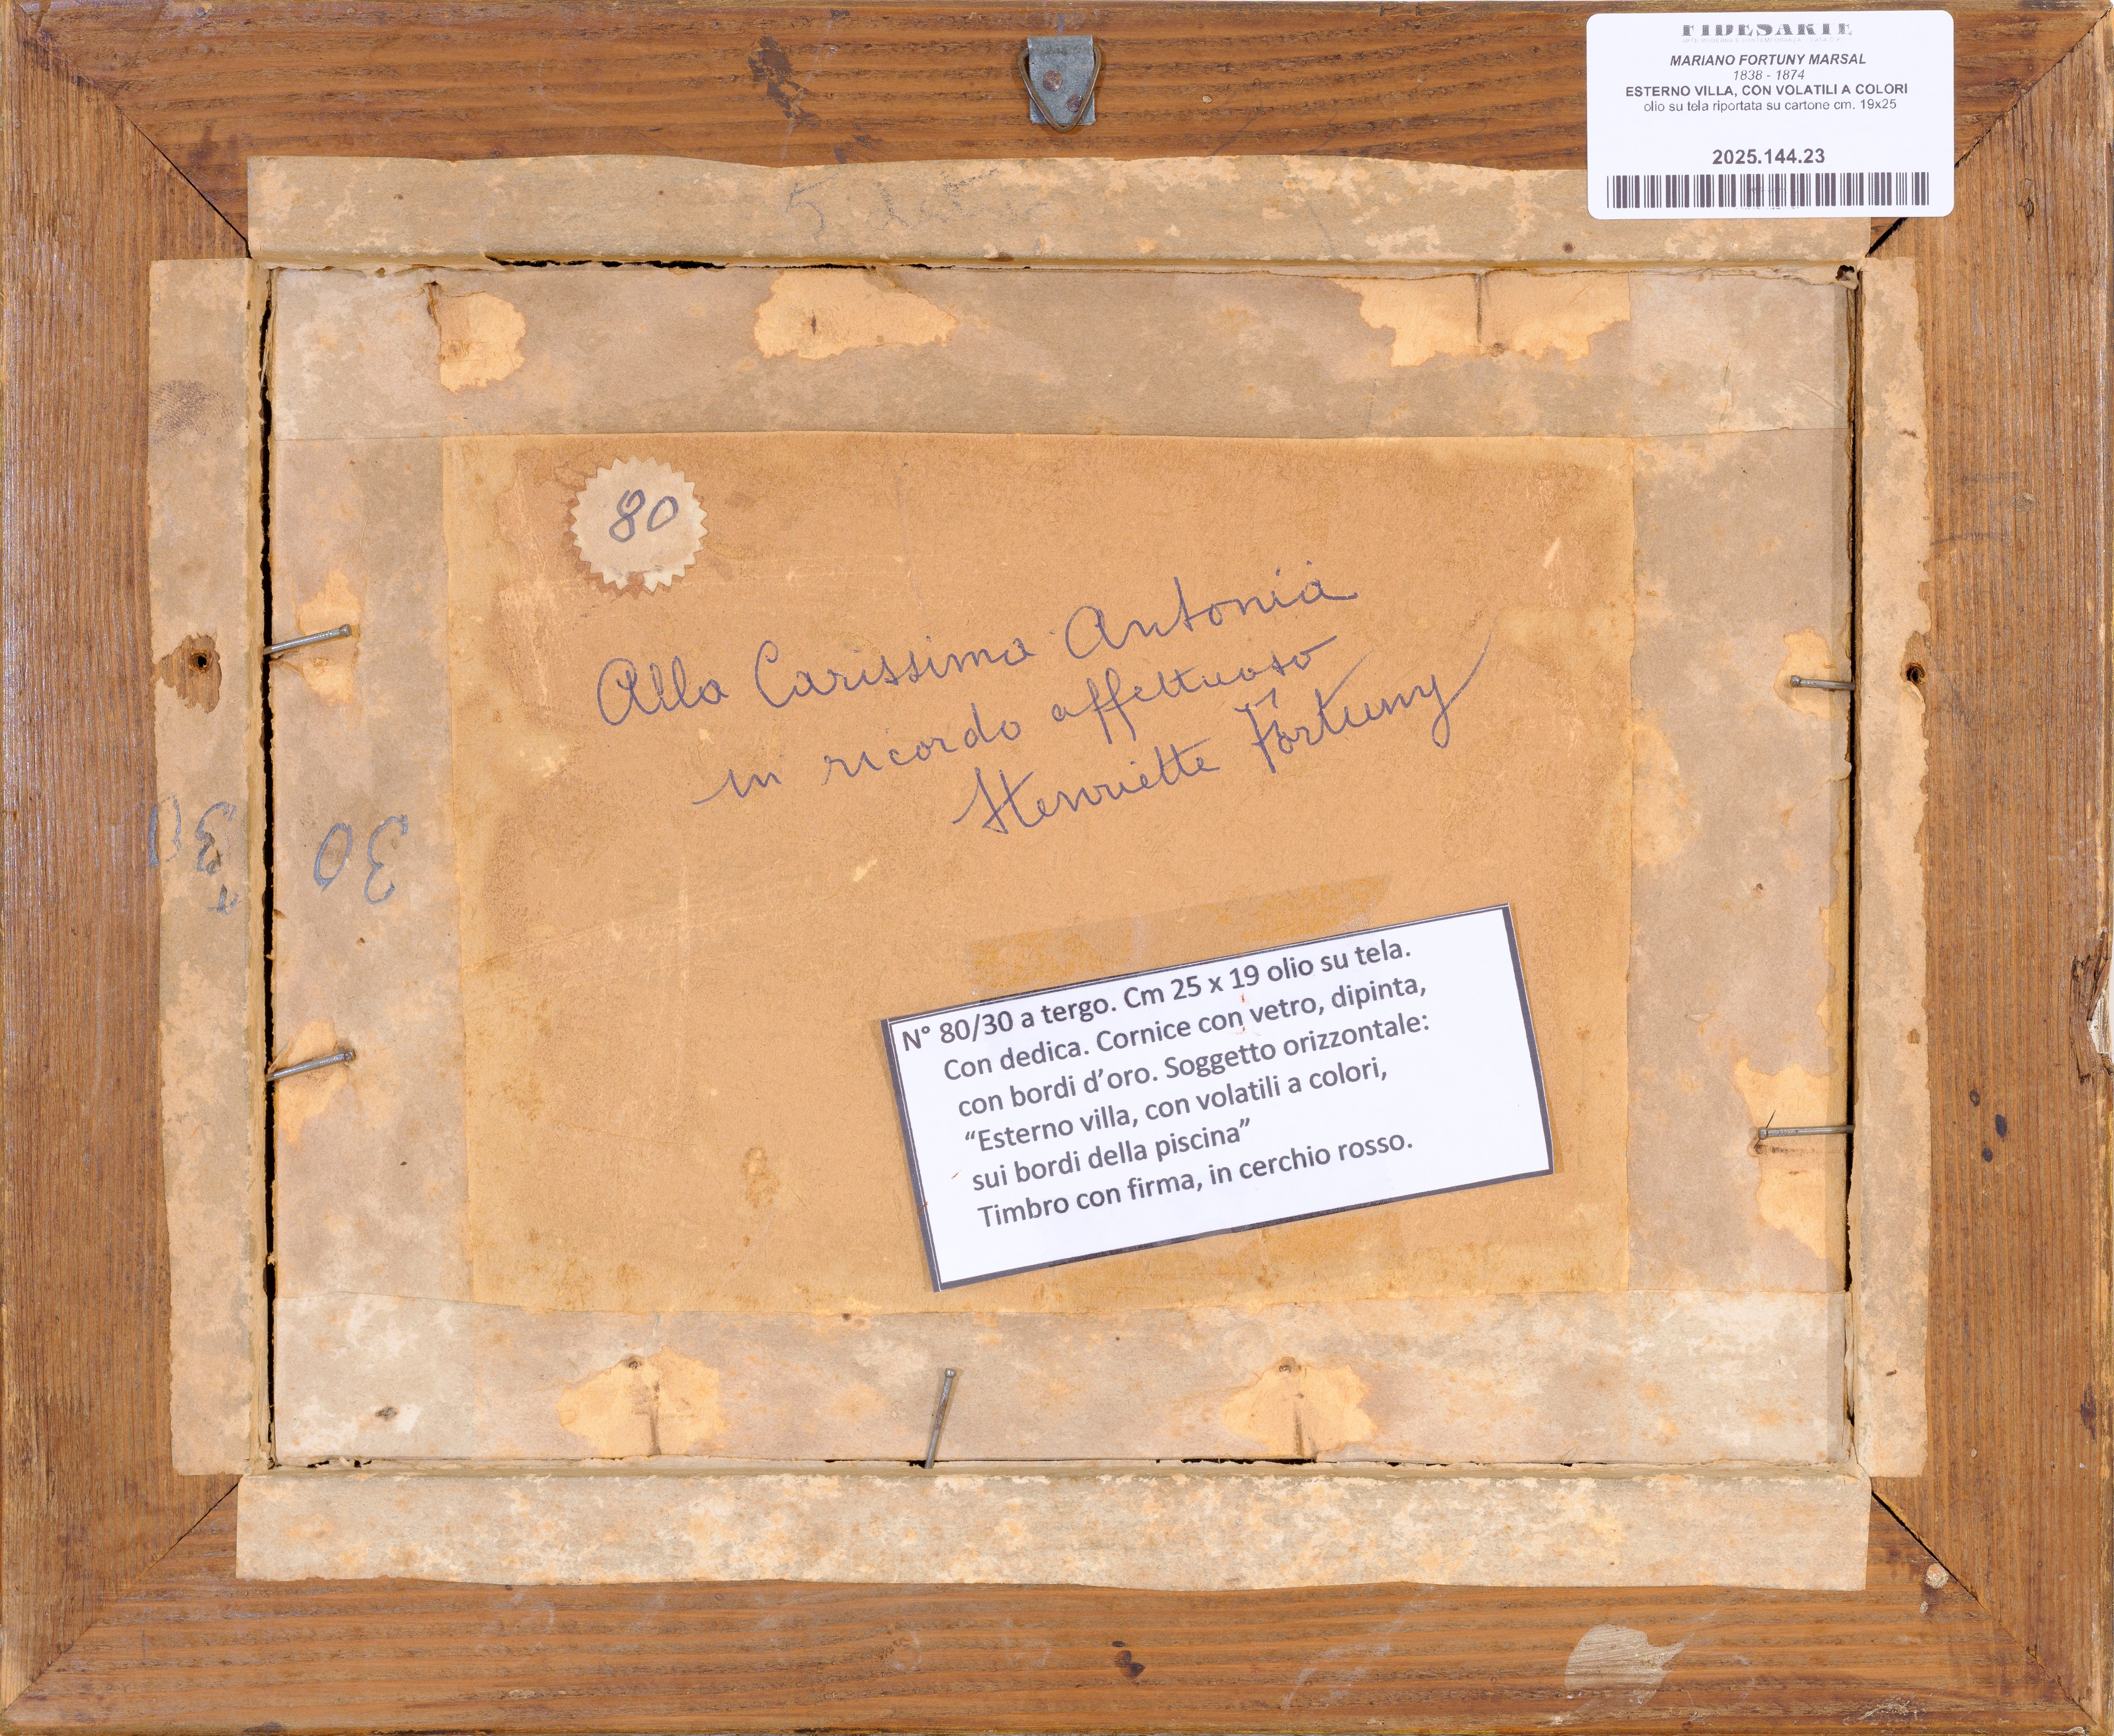 FIDESARTE
MARIANO FORTUNY MARSAL
1838 - 1874
ESTERNO VILLA, CON VOLATILI A COLORI
olio su tela riportata su cartone cm. 19x25
2025.144.23
5
80
Alla Carissima Antonia
in ricordo affettuoso
Henriette Fortuny
30
30
N° 80/30 a tergo. Cm 25 x 19 olio su tela.
Con dedica. Cornice con vetro, dipinta,
con bordi d’oro. Soggetto orizzontale:
“Esterno villa, con volatili a colori,
sui bordi della piscina”
Timbro con firma, in cerchio rosso.